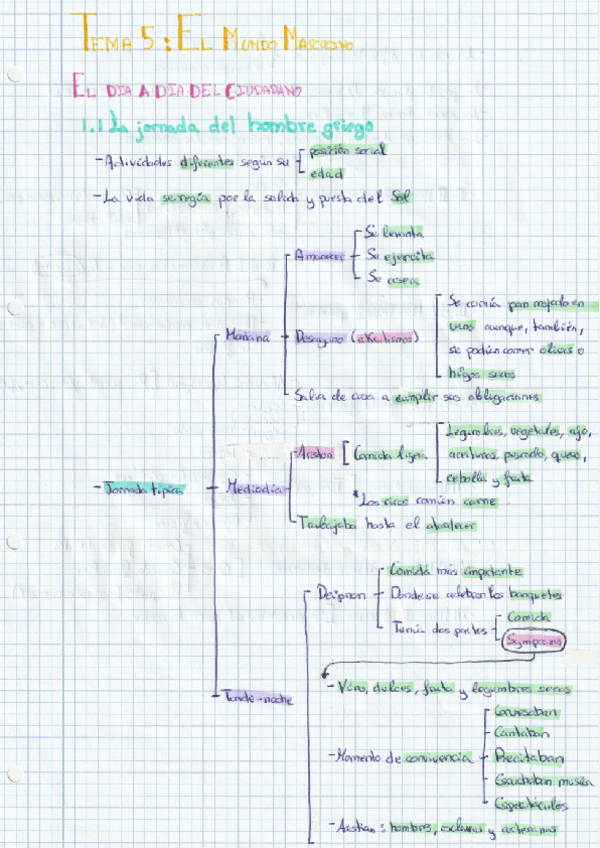 TEMA 5: EL MUNDO MASCULINO
EL DIA A DIA DEL CIUDADANO
1.1 La jornada del hombre griego
- Actividades diferentes según su
posición social
edad
- La vida se regía por la salida y puesta del Sol
- Jornada típica
Mañana
Amanecer
Se levanta
Se ejercita
Se asea
Desayuno (akratismos)
Se comía pan mojado en
vino aunque, también,
se podían comer olivas o
higos secos
Salía de casa a cumplir sus obligaciones
Mediodía
- Ariston
Comida ligera
Legumbres, vegetales, ajo,
aceitunas, pescado, queso,
cebolla y fruta
* Los ricos comían carne
Trabajaba hasta el atardecer
Tarde-noche
Deipnon
Comida más importante
Donde se celebran los banquetes
Tenía dos partes
Comida
Symposio
- Vino, dulces, fruta y legumbres secas
- Momento de convivencia
Conversaban
Cantaban
Recitaban
Escuchaban música
Espectáculos
- Asistían: hombres, esclavas y